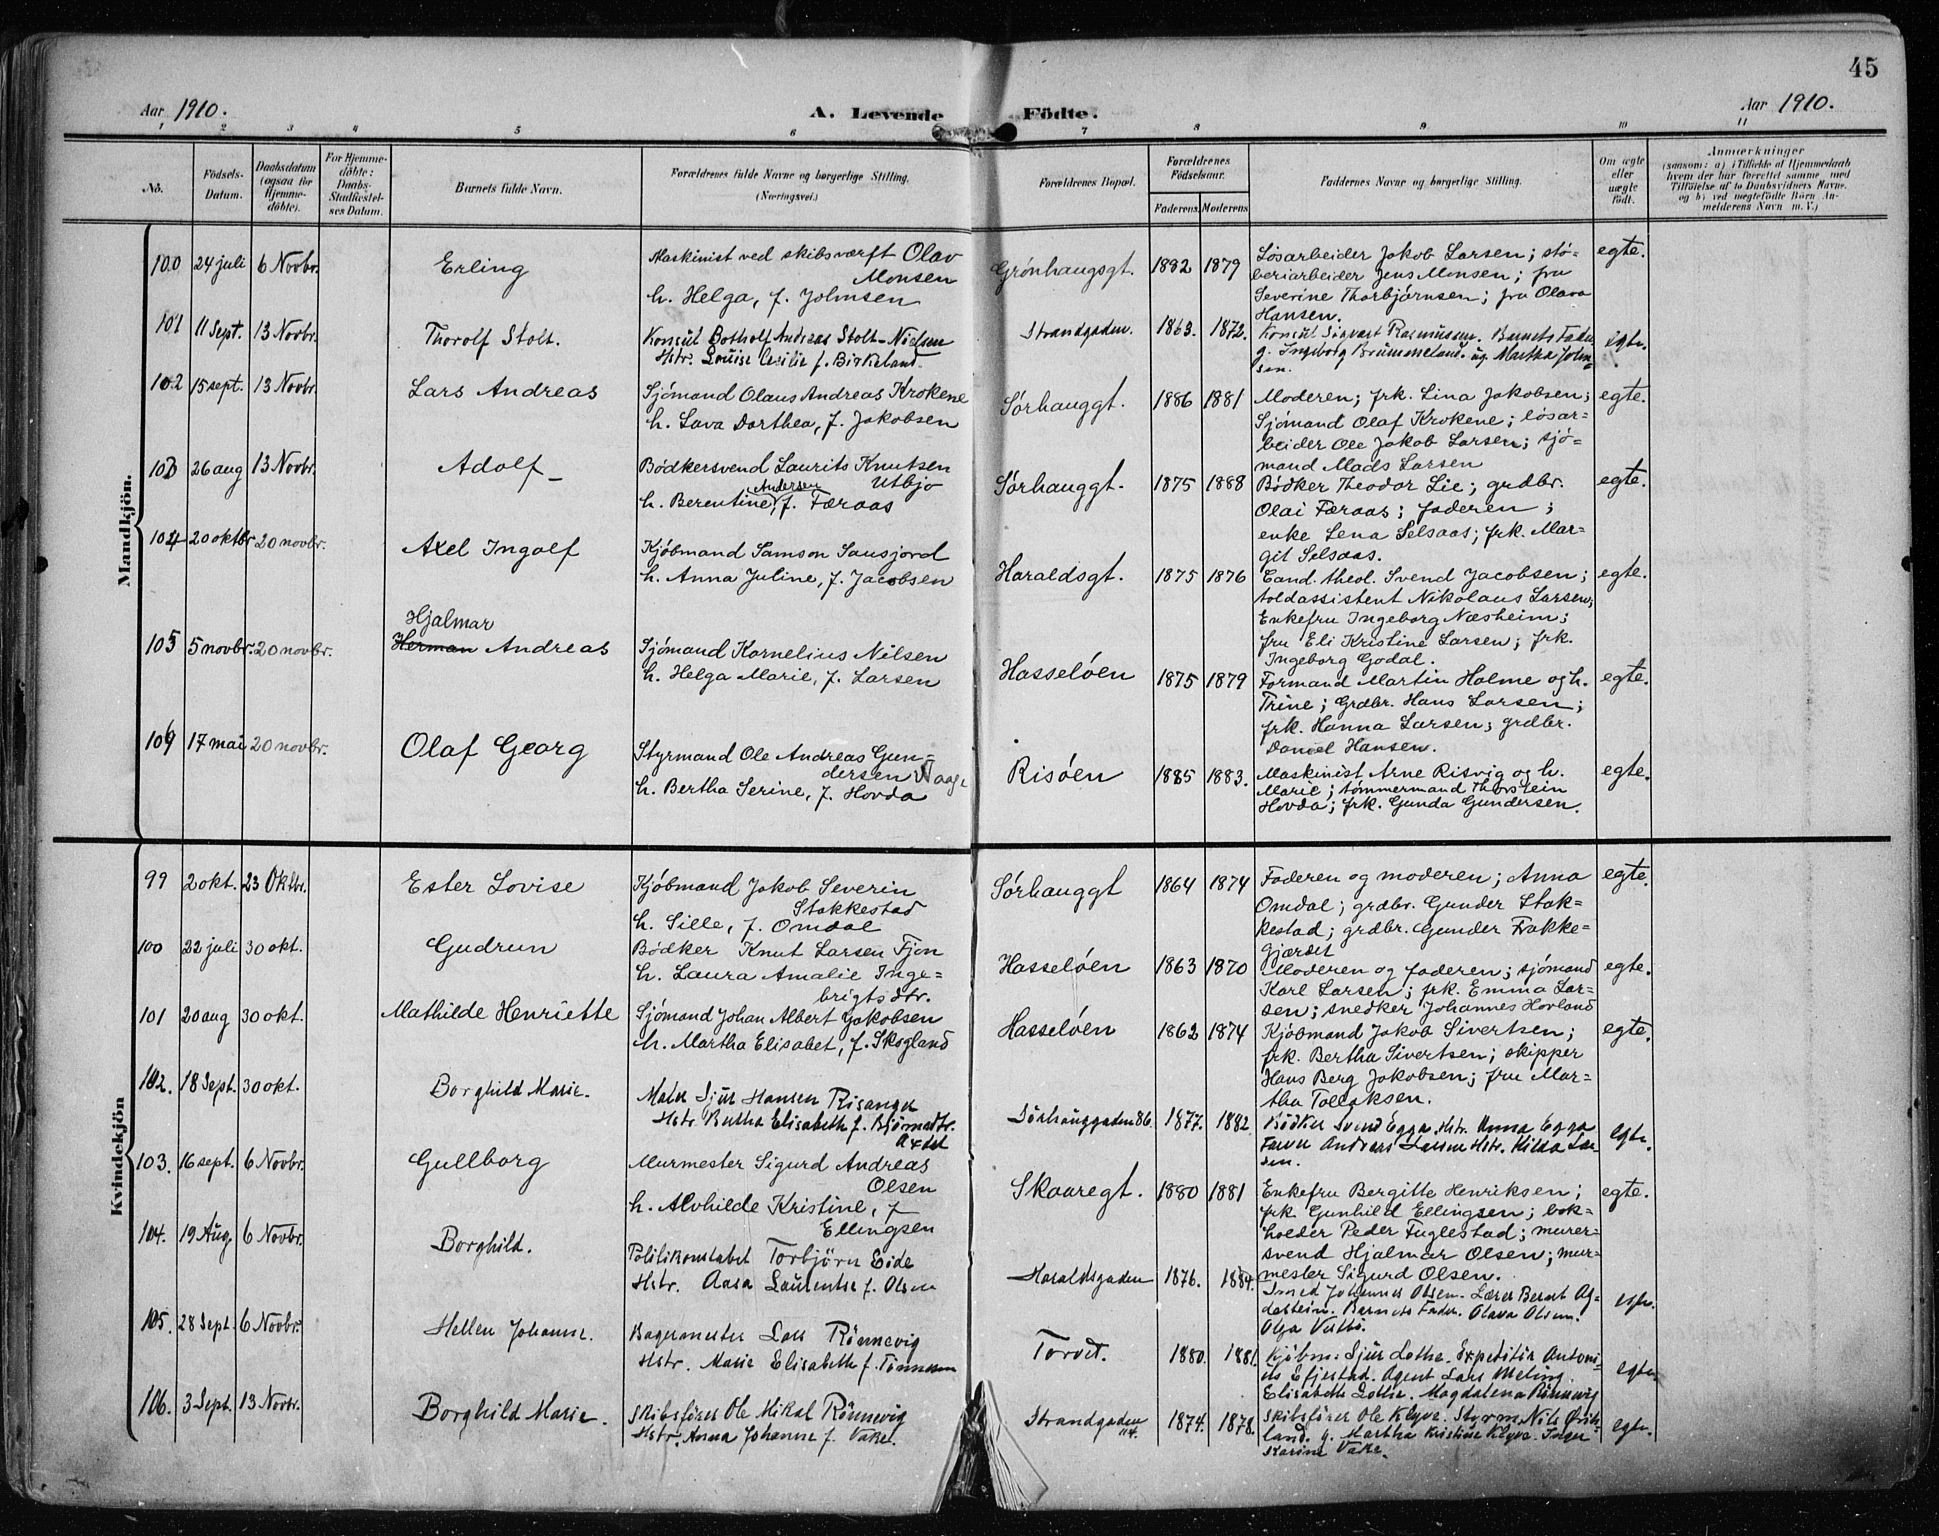 45
Aar 1910. A. Levende Födte. Aar 1910.
1 2 3 4 5 6 7 8 9 10 11
No. Födsels-Datum. Daabsdatum (ogsaa for Hjemme-döbte). For Hjemme-döbte: Daabs-Stadfæstel-ses Datum. Barnets fulde Navn. Forældrenes fulde Navne og borgerlige Stilling. (Næringsvei.) Forældrenes Bopæl. Forældrenes Födselsaar. Faderens. Moderens Faddernes Navne og borgerlige Stilling. Om ægte eller uægte födt. Anmærkninger
(saasom: a) i Tilfælde af Hjemmedaab
hvem der har forrettet samme, med
Tilföielse af to Daabsvidners Navne.
og b) ved uegtefödte Börn An-
melderens Navn m. V.)
Mandkjön.
100 24 juli 6 Novbr. Erling Maskinist ved skibsværft Olav
Monsen
h. Helga, f. Johnsen
Grönhaugsgt. 1882 1879 Løsarbeider Jakob Larsen; stø-
beriarbeider Jens Monsen; fru
Severine Thorbjørnsen; fru Olava
Hansen.
egte.
101 11 Sept. 13 Novbr. Thorolf Stolt. Konsul Botholf Andreas Stolt-Nielsen
Hstr. Louise Cecilie f. Birkeland.
Strandgaden. 1863. 1872. Konsul Sigvart Rasmussen. Barnets Fader
g. Ingeborg Brummeland. og Martha John-
sen.
egte.
102 15 sept. 13 Novbr. Lars Andreas Sjömand Olaus Andreas Krokene
h. Lava Dorthea, f. Jakobsen
Sørhauggt. 1886 1881 Moderen; frk. Lina Jakobsen;
Sjømand Olaf Krokene; løsar-
beider Ole Jakob Larsen; sjø-
mand Mads Larsen
egte.
103 26 aug 13 Novbr. Adolf Bødkersvend Laurits Knutsen
Utbjo
Andersen
h. Berentine, f. Færaas
Sørhauggt. 1875 1888 Bødker Theodor Lie; grdbr.
Olai Færaas; faderen;
enke Lena Selsaas; frk. Mar-
git Selsaas.
egte.
104 20 oktbr. 20 novbr. Axel Ingolf Kjöbmand Samson Sausjord
h. Anna Juline, f. Jacobsen
Haraldsgt. 1875 1876 Cand. theol. Svend Jacobsen;
toldassistent Nikolaus Larsen;
Enkefru Ingeborg Næsheim;
fru Eli Kristine Larsen; frk.
Ingeborg Godal.
egte.
Hjalmar
105 5 novbr. 20 novbr. Herman Andreas Sjömand Kornelius Nilsen
h. Helga Marie, f. Larsen
Hasseløen 1875 1879 Formand Martin Holme og h.
Trine; Grdbr. Hans Larsen;
frk. Hanna Larsen; grdbr.
Daniel Hansen.
egte.
106 17 mai 20 novbr. Olaf Georg Styrmand Ole Andreas Gun-
dersen Waage
h. Bertha Serine, f. Hovda
Risøen 1885 1883. Maskinist Arne Risvig og h.
Marie; tömmermand Thorstein
Hovda; frk. Gunda Gundersen.
egte.
Kvindekjön
99 2 okt. 23 Oktbr. Ester Lovise Kjöbmand Jakob Severin
Stakkestad
h. Sille, f. Omdal
Sørhauggt 1864 1874 Faderen og moderen; Anna
Omdal; grdbr. Gunder Stak-
kestad; grdbr. Gunder Frakke-
gjærdet
egte.
100 22 juli 30 okt. Gudrun Bødker Knut Larsen Fjon
h. Laura Amalie Inge-
brigtsdtr.
Hasseløen 1863 1870 Moderen og faderen; sjömand
Karl Larsen; frk. Emma Lar-
sen; snedker Johannes Hovland
egte.
101 20 aug 30 okt. Mathilde Henriette Sjömand Johan Albert Jakobsen
h. Martha Elisabet, f. Skogland
Hasseløen 1862 1874 Kjöbmand Jakob Sivertsen;
frk. Bertha Sivertsen; skipper
Hans Berg Jakobsen; fru Mar-
tha Tollaksen.
egte.
102. 18 Sept. 30 okt. Borghild Marie. Maler Sjur Hansen Risanger
Hstr. Bertha Elisabeth f. Bjömsdtr.
Sörhauggaden 86. 1877. 1882. Bödker Svend Egge Hstr. Anna Egge
Farver Andreas Larsen Hstr. Hilda Lar-
sen.
egte.
103. 16 sept. 6 Novbr. Gullborg Murmester Sigurd Andreas
Olsen
h. Alvhilde Kristine, f
Ellingsen
Skaaregt. 1880 1881 Enkefru Bergitte Henriksen;
frk. Gunhild Ellingsen; bok-
holder Peder Fuglestad; murer-
svend Hjalmar Olsen; mur-
mester Sigurd Olsen.
egte.
104. 19 Aug. 6 Novbr. Borghild. Politikonstabel Torbjörn Eide
Hstr. Aasa Laurentse f. Olsen
Haraldsgaden 1876. 1884. Smed Johannes Olsen. Lærer Bernt Ag-
desteim. Barnets Fader. Olava Olsen.
Olga Vestbö.
egte.
105. 28 Sept. 6 Novbr. Hellen Johanne. Bagermester Lars Rönnevig
Hstr. Marie Elisabeth f. Tönnesen
Torvet. 1880. 1881. Kjöbm: Sjur Lothe. Expeditör Antoni-
us Efjestad. Agent Lars Meling.
Elisabeth Lothe. Magdalena Rönnevig
egte.
106. 3 Sept. 13 Novbr. Borghild Marie. Skibsförer Ole Mikal Rönnevig
Hstr. Anna Johanne f. Vake.
Strandgaden
114.
1874. 1878. Skibsförer Ole Klyve. Styrm. Nils Övre-
land. g. Martha Kristine Klyve. Inger
Karine Vake.
egte.